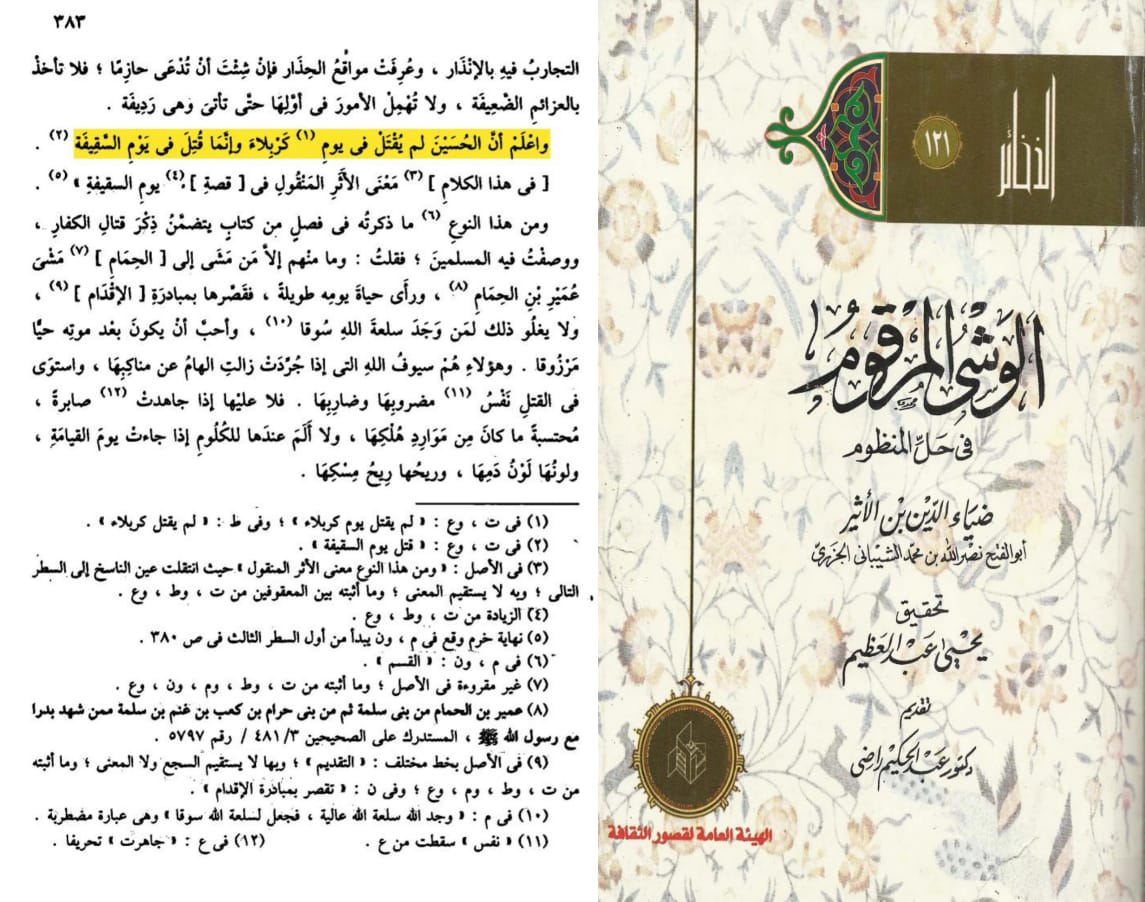 ٣٨٣
التجاربُ فيهِ بالإنْذَار ، وعُرِفَتْ مواقعُ الحِذَار فإنْ شِئْتَ أنْ تُدْعَى حازِمًا ؛ فلا تأخذْ
بالعزائمِ الضَّعِيفَة ، ولا تُهْمِلْ الأمورَ فى أوَّلِهَا حتَّى تأتىَ وهى رَدِيفَة .
واعْلَمْ أنَّ الحُسَيْنَ لم يُقْتَلْ فى يومِ (١) كَرْبِلاءَ وإنَّمَا قُتِلَ فى يَوْمِ السَّقِيفَة (٢) .
[ فى هذا الكلامِ ] (٣) مَعْنَى الأَثَرِ المَنْقُولِ فى [ قصةِ ] (٤) يومِ السقيفةِ » (٥) .
ومن هذا النوعِ (٦) ما ذكرتُه فى فصلٍ مِن كتابٍ يتضمَّنُ ذِكْرَ قتالِ الكفارِ ،
ووصفْتُ فيه المسلمينَ ؛ فقلتُ : وما منْهم إلاَّ مَن مَشَى إلى [ الحِمَامِ ] (٧) مَشْىَ
عُمَيْرِ بْنِ الحِمَامِ (٨) ، ورأَى حياةَ يومِه طويلةً ، فقَصَّرها بمبادرَةِ [ الإقْدَام ] (٩) ،
ولا يغلُو ذلك لمَن وَجَدَ سلعةَ اللهِ سُوقا (١٠) ، وأحبَّ أنْ يكونَ بعْد موتِه حيًّا
مَرْزُوقا . وهؤلاءِ هُمْ سيوفُ اللهِ التى إذا جُرِّدَتْ زالتِ الهامُ عن مناكِبِهَا ، واستوَى
فى القتلِ نَفْسُ (١١) مضروبِهَا وضارِبِهَا . فلا عليْها إذا جاهدتْ (١٢) صابرةً ،
مُحتسبةً ما كانَ مِن مَوَارِدِ هُلْكِهَا ، ولا أَلَمَ عندَها للكُلُومِ إذا جاءتْ يومَ القيامَةِ ،
ولونُهَا لَوْنُ دَمِهَا ، وريحُها رِيحُ مِسْكِهَا .
(١) فى ت ، وع : « لم يقتل يوم كربلاء » ؛ وفى ط : « لم يقتل كربلاء » .
(٢) فى ت ، وع : « قتل يوم السقيفة » .
(٣) فى الأصل : « ومن هذا النوع معنى الأثر المنقول » حيث انتقلت عين الناسخ إلى السطر
التالى ؛ وبه لا يستقيم المعنى ؛ وما أثبته بين المعقوفين من ت ، وط ، وع .
(٤) الزيادة من ت ، وط ، وع .
(٥) نهاية خرم وقع فى م ، ون يبدأ من أول السطر الثالث فى ص ٣٨٠ .
(٦) فى م ، ون : « القسم » .
(٧) غير مقروءة فى الأصل ؛ وما أثبته من ت ، وط ، وم ، ون ، وع .
(٨) عمير بن الحمام من بنى سلمة ثم من بنى حرام بن كعب بن غنم بن سلمة ممن شهد بدرا
مع رسول الله ﷺ ، المستدرك على الصحيحين ٤٨١/٣ / رقم ٥٧٩٧ .
(٩) فى الأصل بخط مختلف : « التقديم » ؛ وبها لا يستقيم السجع ولا المعنى ؛ وما أثبته
من ت ، وط ، وم ، وع ؛ وفى ن : « تقصر بمبادرة الإقدام » .
(١٠) فى م : « وجد الله سلعة الله عالية ، فجعل لسلعة الله سوقا » وهى عبارة مضطربة .
(١١) « نفس » سقطت من ع . (١٢) فى ع : « جاهرت » تحريفا .
الذخائر
١٢١
الوَشْىُ المَرْقُومُ
فى حَلِّ المنظوم
ضياء الدّين بن الأثير
أبو الفتح نصر الله بن محمد الشيبانى الجزرىّ
تحقيق
يحيى عبد العظيم
تقديم
دكتور عبد الحكيم راضى
الهيئة العامة لقصور الثقافة